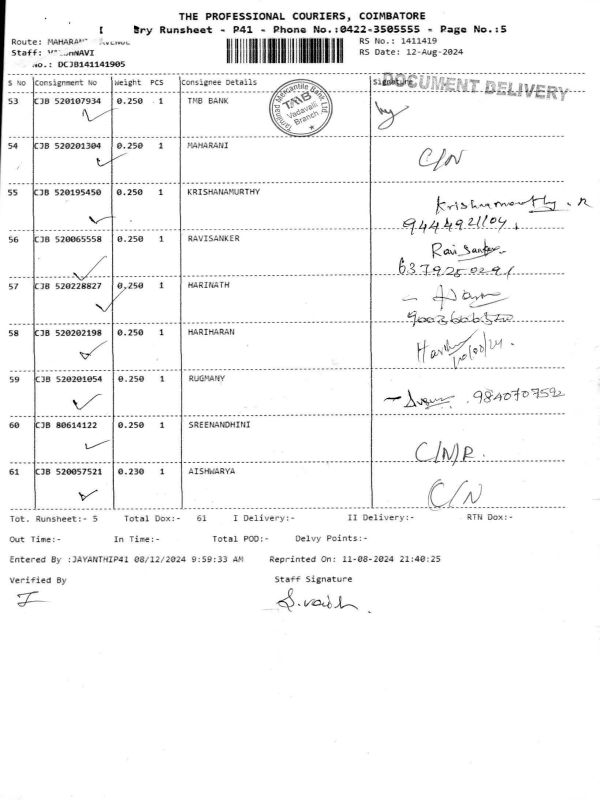 THE PROFESSIONAL COURIERS, COIMBATORE
ry Runsheet - P41 - Phone No.:0422-3505555 - Page No.:5
Route: MAHARANI AVENUE RS No.: 1411419
Staff: NAVI RS Date: 12-Aug-2024
No.: DCJB141141905
DOCUMENT DELIVERY
S No Consignment No Weight PCS Consignee Details Signature
53 CJB 520107934 0.250 1 TMB BANK
Tamilnad Mercantile Bank Ltd
TMB
Vadavalli
Branch
54 CJB 520201304 0.250 1 MAHARANI C/N
55 CJB 520195450 0.250 1 KRISHANAMURTHY Krishnamoorthy . R
9444921104
56 CJB 520065558 0.250 1 RAVISANKER Ravi Sanker
6379250291
57 CJB 520228827 0.250 1 HARINATH
58 CJB 520202198 0.250 1 HARIHARAN
59 CJB 520201054 0.250 1 RUGMANY 9840707592
60 CJB 80614122 0.250 1 SREENANDHINI C/N/R.
61 CJB 520057521 0.230 1 AISHWARYA C/N
Tot. Runsheet:- 5 Total Dox:- 61 I Delivery:- II Delivery:- RTN Dox:-
Out Time:- In Time:- Total POD:- Delvy Points:-
Entered By :JAYANTHIP41 08/12/2024 9:59:33 AM Reprinted On: 11-08-2024 21:40:25
Verified By Staff Signature